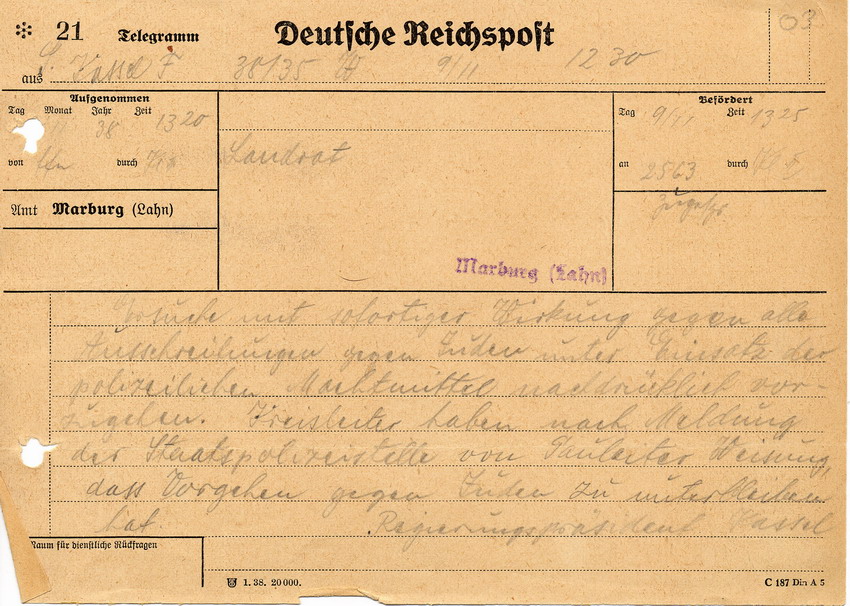 21 Telegramm Deutsche Reichspost 03
aus S. Kassel F 38/35 W 9/11 12 30
Aufgenommen
Tag Monat Jahr Zeit
38 1320
von durch
Amt Marburg (Lahn)
Landrat
Marburg (Lahn)
Befördert
Tag 9/11 Zeit 1325
an 2563 durch
Ersuche mit sofortiger Wirkung gegen alle
Ausschreitungen gegen Juden unter Einsatz der
polizeilichen Machtmittel nachdrücklich vor-
zugehen. Kreisleiter haben nach Meldung
der Staatspolizeistelle von Gauleiter Weisung,
dass Vorgehen gegen Juden zu unterbleiben
hat. Regierungspräsident Kassel
Raum für dienstliche Rückfragen
1. 38. 20 000.
C 187 Din A 5